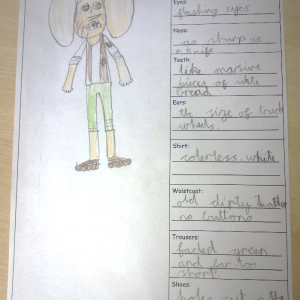 Eyes:
flashing eyes
Nose:
as sharp as
a knife
Teeth:
like massive
pieces of white
bread
Ears:
the size of truck
wheels.
Shirt:
colerless. white
Waistcoat:
old dirty leather
no buttons
Trousers:
faded green
and far too
short
Shoes:
holes